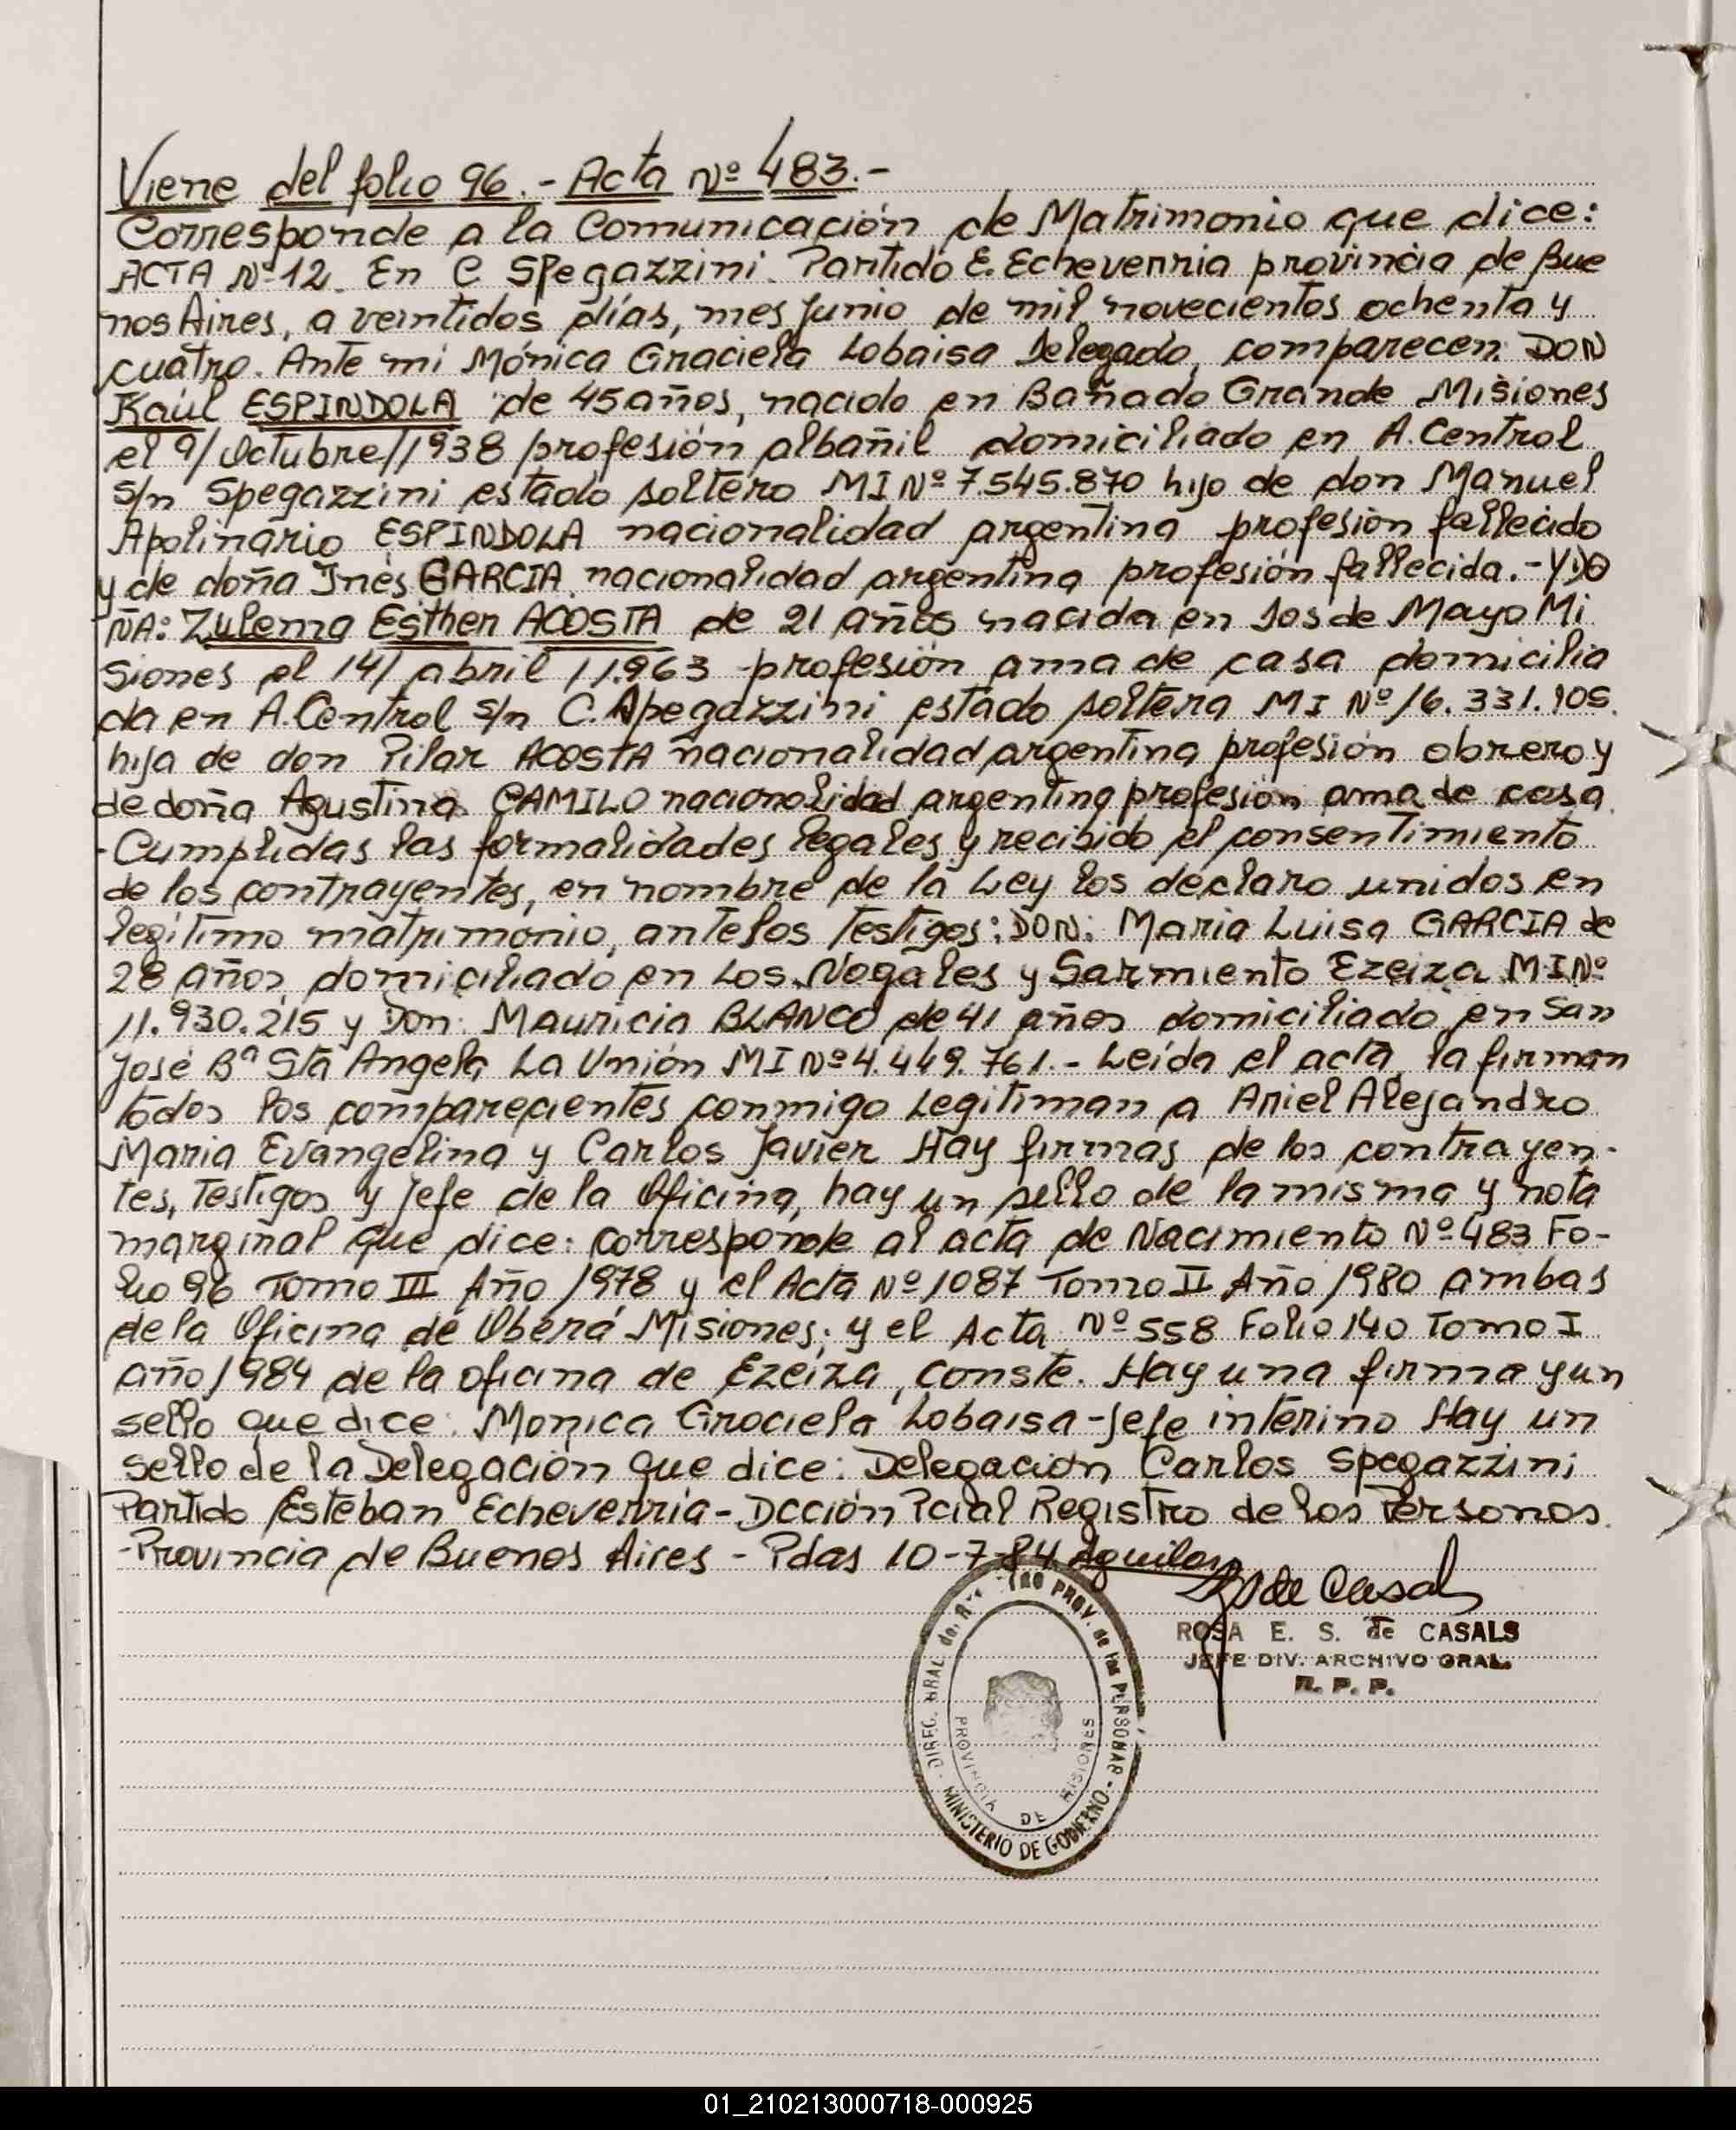 Viene del folio 96.- Acta Nº 483.-
Corresponde a la Comunicación de Matrimonio que dice:
ACTA Nº 12. En C Spegazzini. Partido E. Echeverria provincia de Bue
nos Aires, a veintidos días, mes Junio de mil novecientos ochenta y
cuatro. Ante mi Mónica Graciela Lobaisa Delegado, comparecen DON
Raúl ESPINDOLA de 45 años, nacido en Bañado Grande Misiones
el 9/Octubre/1938 profesión albañil domiciliado en A. Central
s/n Spegazzini estado soltero MI Nº 7.545.870 hijo de don Manuel
Apolinario ESPINDOLA nacionalidad argentina profesión fallecido
y de doña Inés GARCIA, nacionalidad argentina profesión fallecida.- Y DO
ÑA: Zulema Esther ACOSTA de 21 años nacida en 1os de Mayo Mi
siones el 14/ abril /1.963 profesión ama de casa domicilia
da en A. Central s/n C. Spegazzini estado soltera MI Nº 16.331.105.
hija de don Pilar ACOSTA nacionalidad argentina profesión obrero y
de doña Agustina CAMILO nacionalidad argentina profesión ama de casa.
-Cumplidas las formalidades legales y recibido el consentimiento
de los contrayentes, en nombre de la Ley los declaro unidos en
legítimo matrimonio, ante los testigos: DON: Maria Luisa GARCIA de
28 años domiciliado en Los Nogales y Sarmiento Ezeiza MI Nº
11.930.215 y Don: Mauricia BLANCO de 41 años domiciliado en San
José Bª Sta Angela La Unión MI Nº 4.449.761.- Leída el acta, la firman
todos los comparecientes conmigo Legitiman a Ariel Alejandro
Maria Evangelina y Carlos Javier Hay firmas de los contrayen-
tes, Testigos y Jefe de la Oficina, hay un sello de la misma y nota
marginal que dice: corresponde al acta de Nacimiento Nº 483 Fo-
lio 96 Tomo III Año 1978 y el Acta Nº 1087 Tomo II Año 1980 ambas
de la Oficina de Oberá Misiones; y el Acta Nº 558 Folio 140 Tomo I
año 1984 de la oficina de Ezeiza, Conste. Hay una firma y un
sello que dice: Monica Graciela Lobaisa-Jefe interino Hay un
sello de la Delegación que dice: Delegación Carlos Spegazzini
Partido Esteban Echeverria-Dcción Pcial Registro de los Personas.
-Provincia de Buenos Aires - Pdas 10-7-84 Aguilar
R de Casals
ROSA E. S. de CASALS
JEFE DIV. ARCHIVO GRAL.
R. P. P.
DIREC. GRAL del PROV. de las PERSONAS - MINISTERIO DE GOBIERNO -
PROVINCIA DE MISIONES
01_210213000718-000925